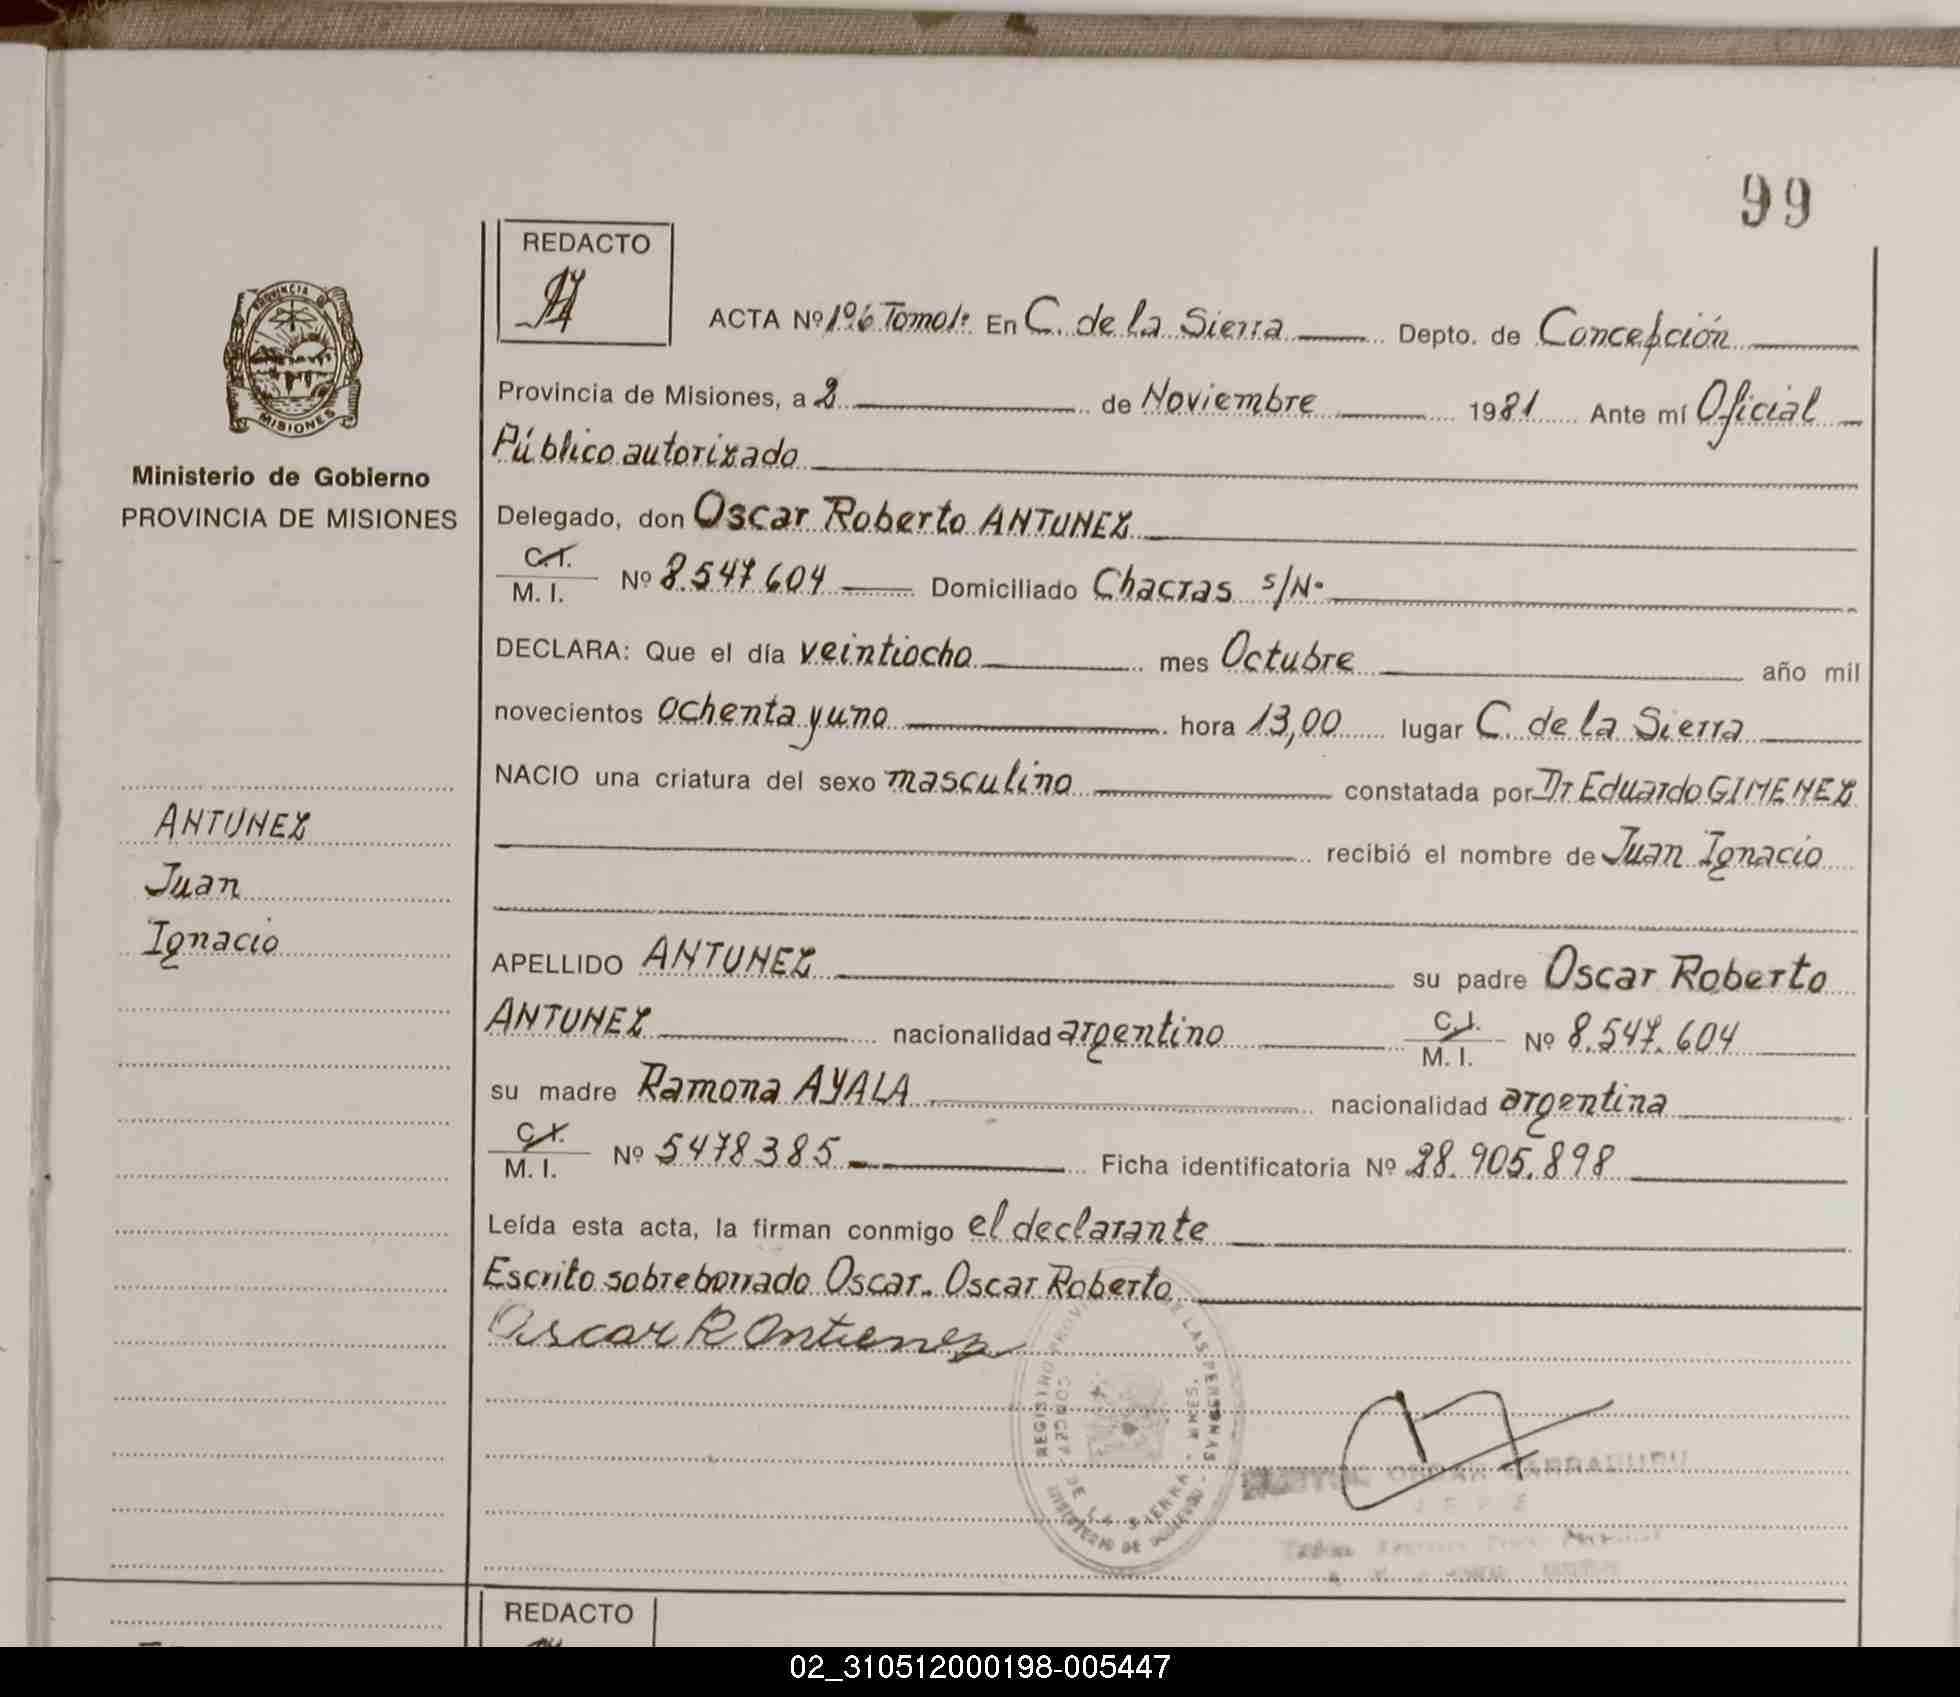 99
REDACTO
PROVINCIA DE
MISIONES
Ministerio de Gobierno
PROVINCIA DE MISIONES
ACTA Nº 196 Tomo 1º En C. de la Sierra Depto. de Concepción
Provincia de Misiones, a 2 de Noviembre 1981 Ante mí Oficial
Público autorizado
Delegado, don Oscar Roberto ANTUNEZ
C.I.
M. I. Nº 8.547.604 Domiciliado Chacras s/Nº
DECLARA: Que el día veintiocho mes Octubre año mil
novecientos ochenta y uno hora 13,00 lugar C. de la Sierra
NACIO una criatura del sexo masculino constatada por Dr Eduardo GIMENEZ
recibió el nombre de Juan Ignacio
ANTUNEZ
Juan
Ignacio
APELLIDO ANTUNEZ su padre Oscar Roberto
ANTUNEZ nacionalidad argentino C.I. M. I. Nº 8.547.604
su madre Ramona AYALA nacionalidad argentina
C.I.
M. I. Nº 5478385 Ficha identificatoria Nº 28.905.898
Leída esta acta, la firman conmigo el declarante
Escrito sobreborrado Oscar. Oscar Roberto
Oscar R Antunez
REGISTRO PROVINCIAL DE LAS PERSONAS
CONCEPCION DE LA SIERRA - MNES.
MINISTERIO DE GOBIERNO
JEFE
REDACTO
02_310512000198-005447